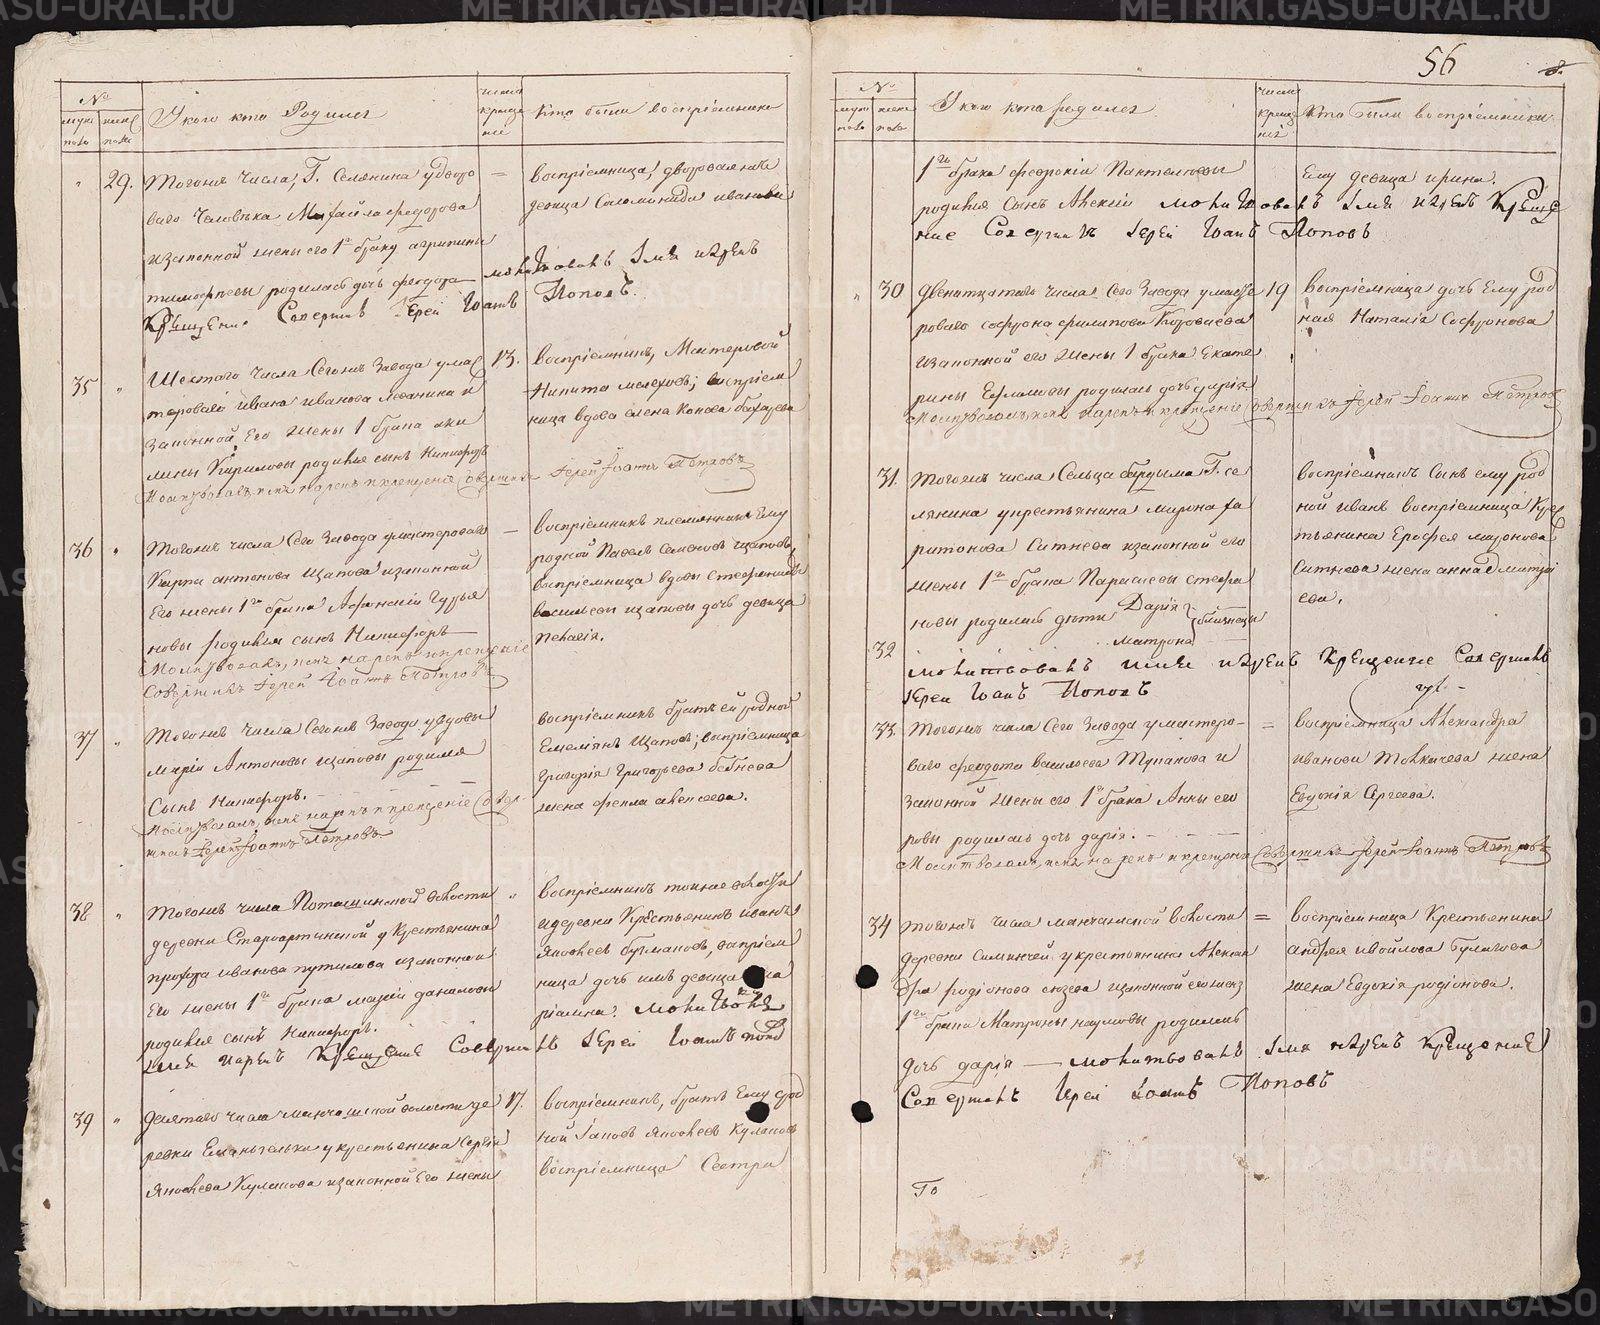 №
муж
ноло
жен
ноло
У кого кто Родился
число
креще
ние
Кто были восприемники
29.
Тогоже числа, Г. Селянина у дворо
ваго человека Михайла федорова
изаконной жены его 1 браку агрипины
тимофеевы родилась дочь феодора
молитвовалъ имя нарекъ
Крещение Совершилъ Іерей Іоаннъ Поповъ.
восприемница, дворовая
девица Соломонида иванова
35
Шестаго числа Сегожъ Завода у мас
тероваго ивана иванова и
законной Его жены 1 брака аки
лины Кириловы родился сынъ Никифоръ
Молитвовалъ, имя нарекъ и крещение Совершилъ Іерей Іоаннъ Петровъ
13.
восприемникъ, Мастеровой
Никита мелеховъ; восприем
ница вдова елена
36
Тогожъ числа Сего Завода у мастероваго
Карпа антонова щапова изаконной
Его жены 1 брака Афанасии Гурья
новы родился сынъ Никифоръ
Молитвовалъ, имя нарекъ и крещение
Совершилъ Іерей Іоаннъ Петровъ
восприемникъ племянникъ Ему
родной Павелъ Семеновъ щаповъ,
восприемница вдовы
васильевы щаповы дочь девица
Пелагия.
37
Тогожъ числа Сегожъ Завода у вдовы
Марии Антоновы щаповы родился
Сынъ Никифоръ.
Молитвовалъ, имя нарекъ и крещение Совер-
шилъ Іерей Іоаннъ Петровъ
восприемникъ братъ ей родной
Емелиянъ Щаповъ; восприемница
Григория Григорьева бабнева
жена фекла алексеева.
38
Тогожъ числа Поташинской волости
деревни Староартинской у Крестьянина
прохора иванова путилова изаконной
Его жены 1 брака марии даниловы
родился сынъ Никифоръ.
имя нарекъ Крещение Совершилъ Іерей Іоаннъ попов
восприемникъ тойже волости
идеревни Крестьянинъ иванъ
Яковлевъ бутмаковъ, восприем
ница дочь имъ девица
молитвовалъ
39
девятаго числа манчажской волости де
ревни Еманзелька у крестьянина Сергея
Яковлева Кулакова изаконной Его жены
17.
восприемникъ, братъ Ему род
ной Іаковъ Яковлевъ Кулаковъ
восприемница Сестра
56
№
муж
ноло
жен
ноло
У кого кто родился
число
креще
ния
Кто Были восприемники
1 брака феврония Пантелеевы
родился Сынъ Алексий молитвовалъ имя нарекъ Креще
ние Совершилъ Іерей Іоаннъ Поповъ
Ему девица ирина.
30
Двенатцатаго числа Сего Завода у масте
роваго софрона филипова Короваева
изаконной его жены 1 брака Екате
рины Ефимовы родилась дочь дария
Молитвовалъ, имя нарекъ и крещение Совершилъ Іерей Іоаннъ Петровъ
19
восприемница дочь Ему род
ная Наталия Софронова
31.
Тогожъ числа Сельца бердыма Г. се
лянина у крестьянина мирона ха
ритонова Ситнева изаконной его
жены 1 брака Парасцевы стефа
новы родились дети Дария
32
Матрона близнецы
молитвовалъ имя нарекъ Крещение Совершилъ
Іереи Іоаннъ Поповъ
восприемникъ Сынъ ему род
ной иванъ восприемница Крес
тьянина Ерофея миронова
Ситнева жена анна дмитри
ева.
33.
Тогожъ числа Сего Завода у мастеро-
ваго феодота васильева Тупакова и
законной жены его 1 брака Анны его
ровы родилась дочь дария.
Молитвовалъ, имя нарекъ и крещение Совершилъ Іерей Іоаннъ Петровъ
восприемница Александра
иванова Толкачева жена
Евдокия Сергеева.
34
тогожъ числа манчажской волости
деревни Симинчей у крестьянина Алексан
дра родионова сюзева изаконной его жены
1 брака Матроны наумовы родилась
дочь дария — молитвовалъ имя нарекъ Крещение
Совершилъ Іерей Іоаннъ Поповъ
восприемница Крестьянина
андрея Булатова
жена Евдокия родионова.
То
METRIKI.GASU-URAL.RU